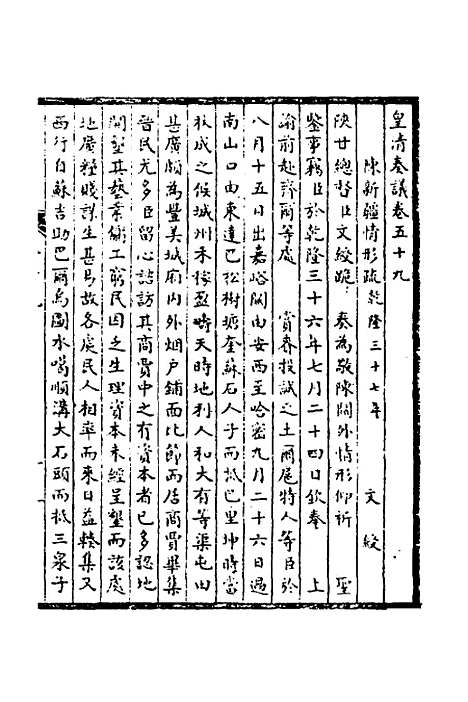 皇清奏議卷五十九
陳新疆情形疏乾隆三十七年 文綬
陝甘總督臣文綬跪 奏為敬陳關外情形仰祈 聖
鑒事竊臣於乾隆三十六年七月二十四日欽奉 上
諭前赴濟爾等處 賞賚投誠之土爾扈特人等臣於
八月十五日出嘉峪關由安西至哈密九月二十六日過
南山口由東達巴松樹塘奎蘇石人子而抵巴里坤時當
收成之候城州禾稼盈時天時地利人和大有等渠屯田
甚廣頗為豐美城廂內外烟戶鋪面比節而居商賈畢集
晉民尤多臣留心諮訪其商賈中之有資本者已多認地
開墾其藝業傭工窮民因乏生理資本未經呈墾而該處
地廣糧賤謀生甚易故各處民人相率而來日益輳集又
西行自蘇吉助巴爾烏圖水噶順溝大石頭而抵三泉子